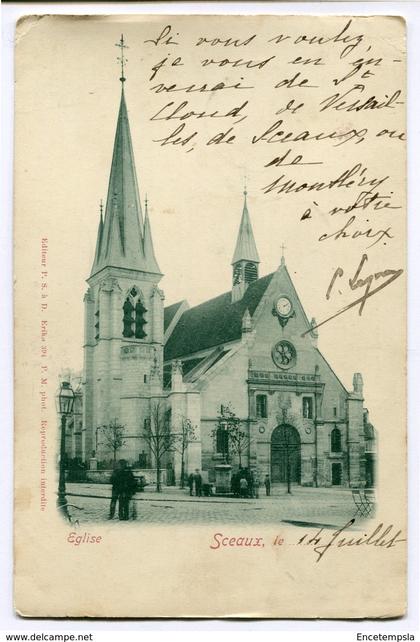 Si vous voulez,
je vous en en-
verrai de St
Cloud, de Versail-
les, de Sceaux, ou
de
Montléry
à votre
choix.
Editeur P. S. à D. Erika 394 P. M. phot. Reproduction interdite
Eglise
Sceaux, le 14 Juillet
© www.delcampe.net
Encetempsla